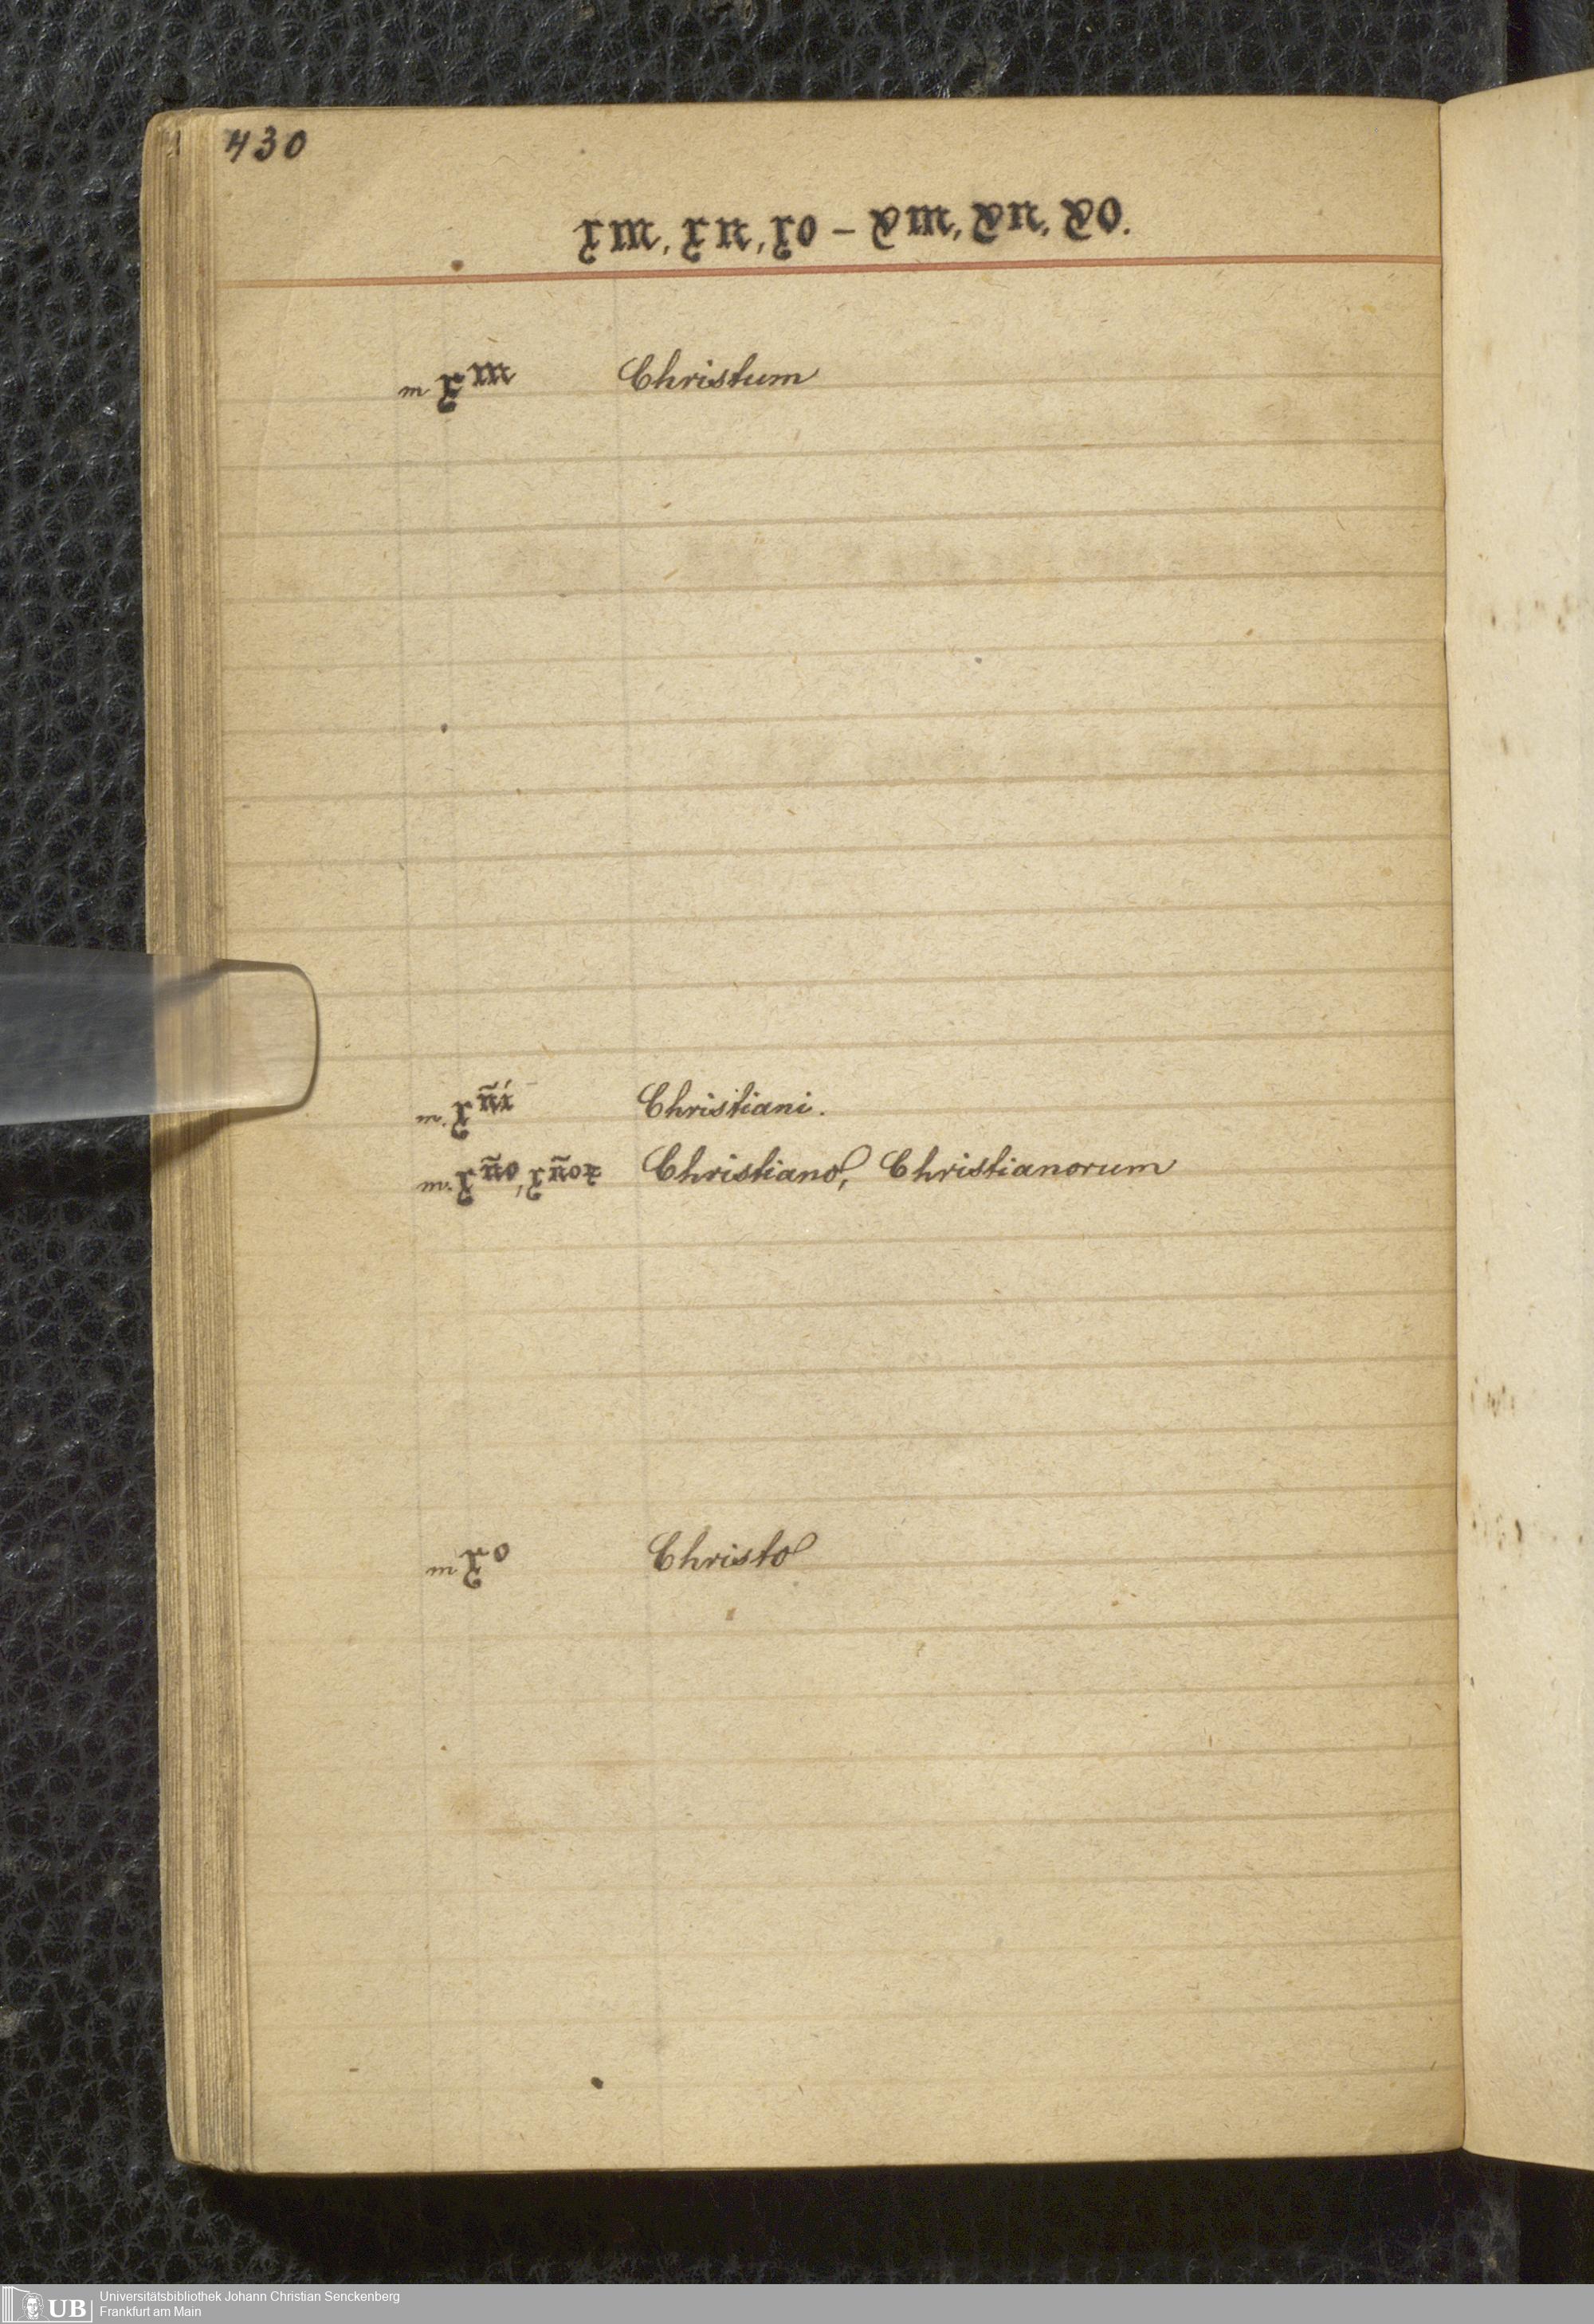 430
xm, xn, xo – ꝛm, ꝛn, ꝛo.
m xᵐ Christum
m. xñí Christiani.
m. xño, xñoꝝ Christiano, Christianorum
m xᵒ Christo
UB Universitätsbibliothek Johann Christian Senckenberg
Frankfurt am Main